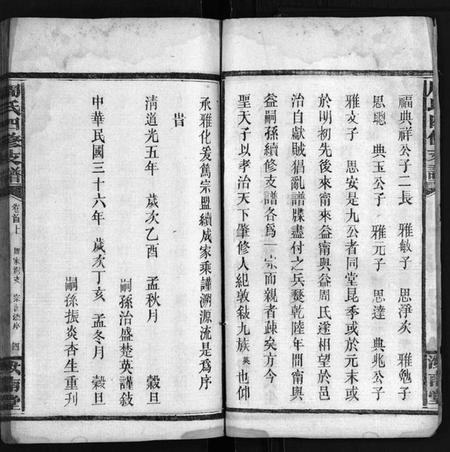 福典祥公子二長　雅敏子　思淨次　雅勉子
思聰　典玉公子　雅元子　思達　典兆公子
雅㕛子　思安是九公者同堂昆季或於元末或
於明初先後來甯來益甯與益周氏遂相望於邑
治自獻賊猖亂譜牒盡付之兵燹乾隆年間甯與
益嗣孫續修支譜各爲一宗而親者疎矣方今
聖天子以孝治天下肇修人紀敦敍九族英也仰
承雅化爰篤宗盟續成家乘謹溯源流是爲序
時
清道光五年　歲次乙酉　孟秋月　榖旦
嗣孫治盛楚英謹敍
中華民國三十六年　歲次丁亥　孟冬月　榖旦
嗣孫振炎杏生重刊
周氏四修支譜　卷首上　四　汝南堂